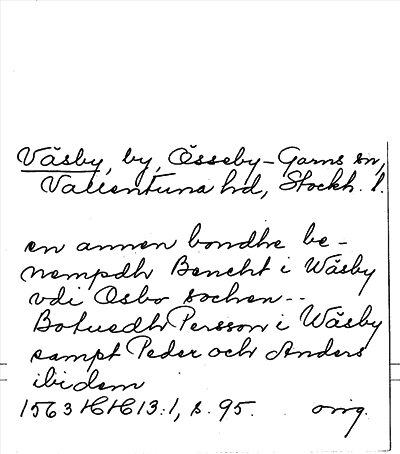 Väsby, by, Össeby-Garns sn,
Vallentuna hd, Stockh. l.
en annen bondhe be-
nempdh Bencht i Wäsby
vdi Osbo sochen--
Botuedh Persson i Wäsby
sampt Peder och Anders
ibidem
1563 HH 13:1, s. 95. orig.